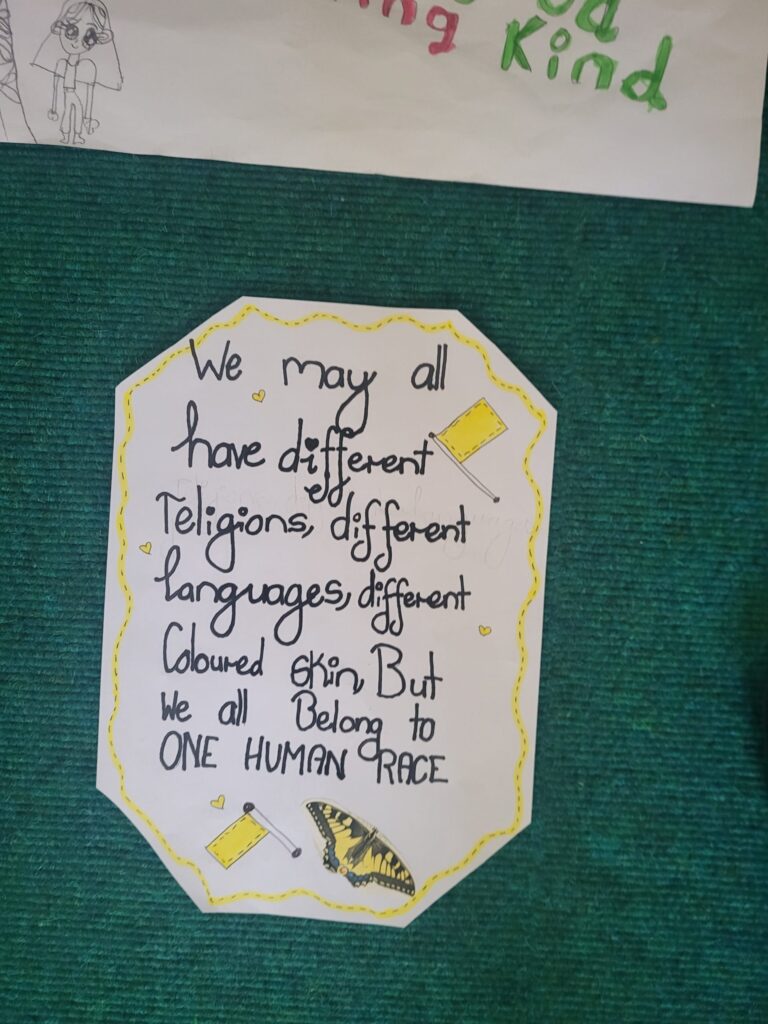 Kind
We may all
have different
religions, different
languages, different
Coloured skin, But
We all Belong to
ONE HUMAN RACE